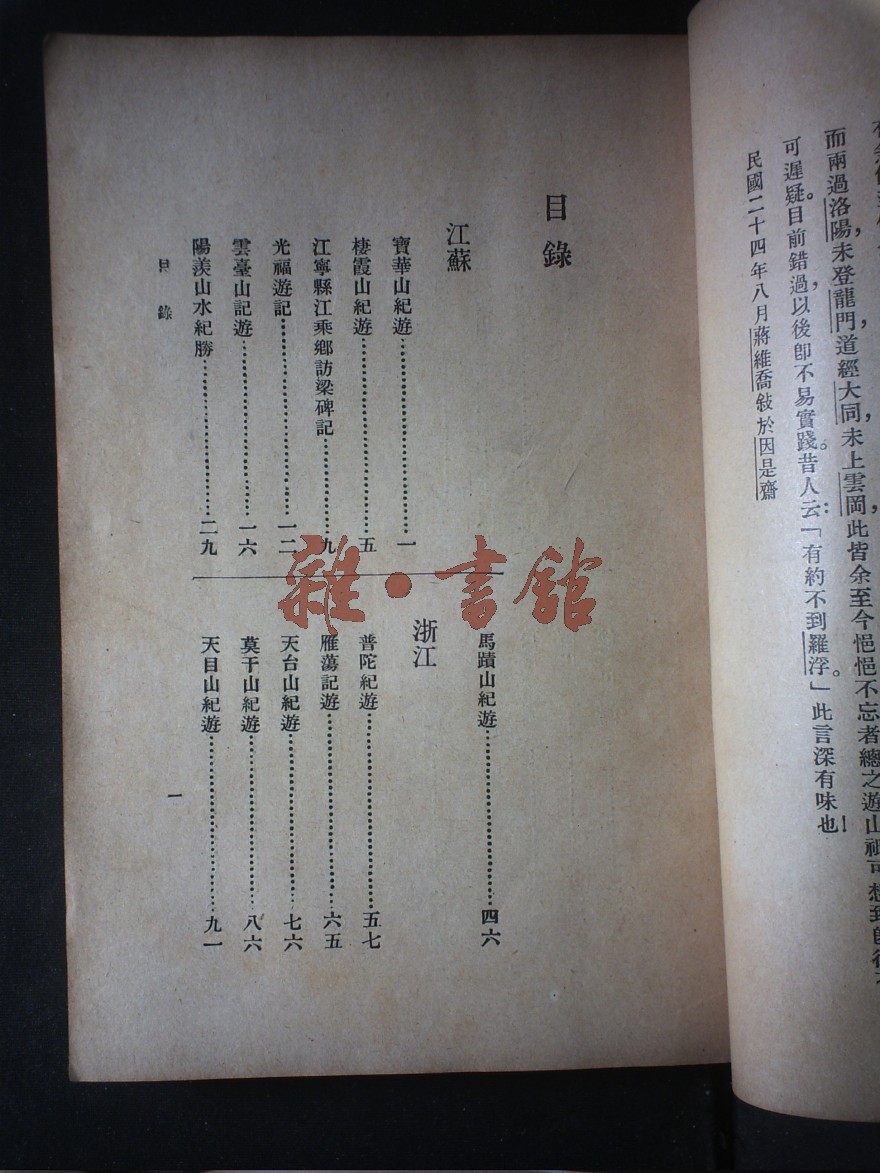 而兩過洛陽，未登龍門，道經大同，未上雲岡，此皆余至今悒悒不忘者總之遊山
可遲疑。目前錯過，以後卽不易實踐。昔人云：「有約不到羅浮。」此言深有味也！
民國二十四年八月蔣維喬敍於因是齋
目錄
江蘇
寶華山紀遊……一
棲霞山紀遊……五
江寧縣江乘鄉訪梁碑記……九
光福遊記……一二
雲臺山記遊……一六
陽羨山水紀勝……二九
馬蹟山紀遊……四六
浙江
普陀紀遊……五七
雁蕩記遊……六五
天台山紀遊……七六
莫干山紀遊……八六
天目山紀遊……九一
目錄
一
雜·書館